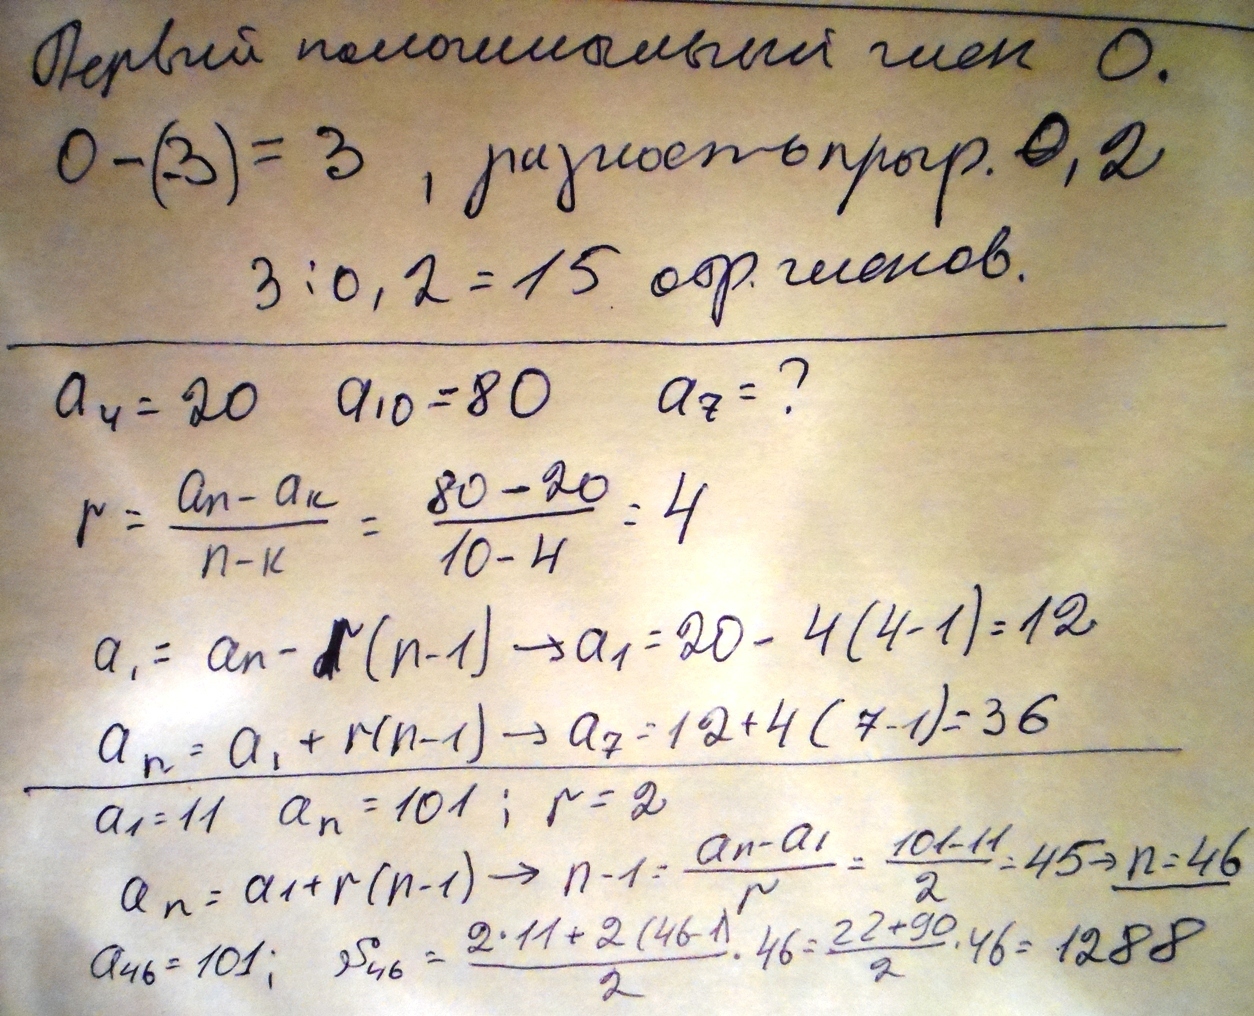 Первый положительный член 0.
0-(-3)=3, разность прогр. 0,2
3:0,2=15 отр. членов.
a₄=20 a₁₀=80 a₇=?
r = (aₙ-aₖ)/(n-k) = (80-20)/(10-4) = 4
a₁= aₙ-r(n-1) → a₁=20-4(4-1)=12
aₙ=a₁+r(n-1) → a₇=12+4(7-1)=36
a₁=11 aₙ=101; r=2
aₙ=a₁+r(n-1) → n-1=(aₙ-a₁)/r=(101-11)/2=45→n=46
a₄₆=101; S₄₆=(2·11+2(46-1))/2·46=(22+90)/2·46=1288